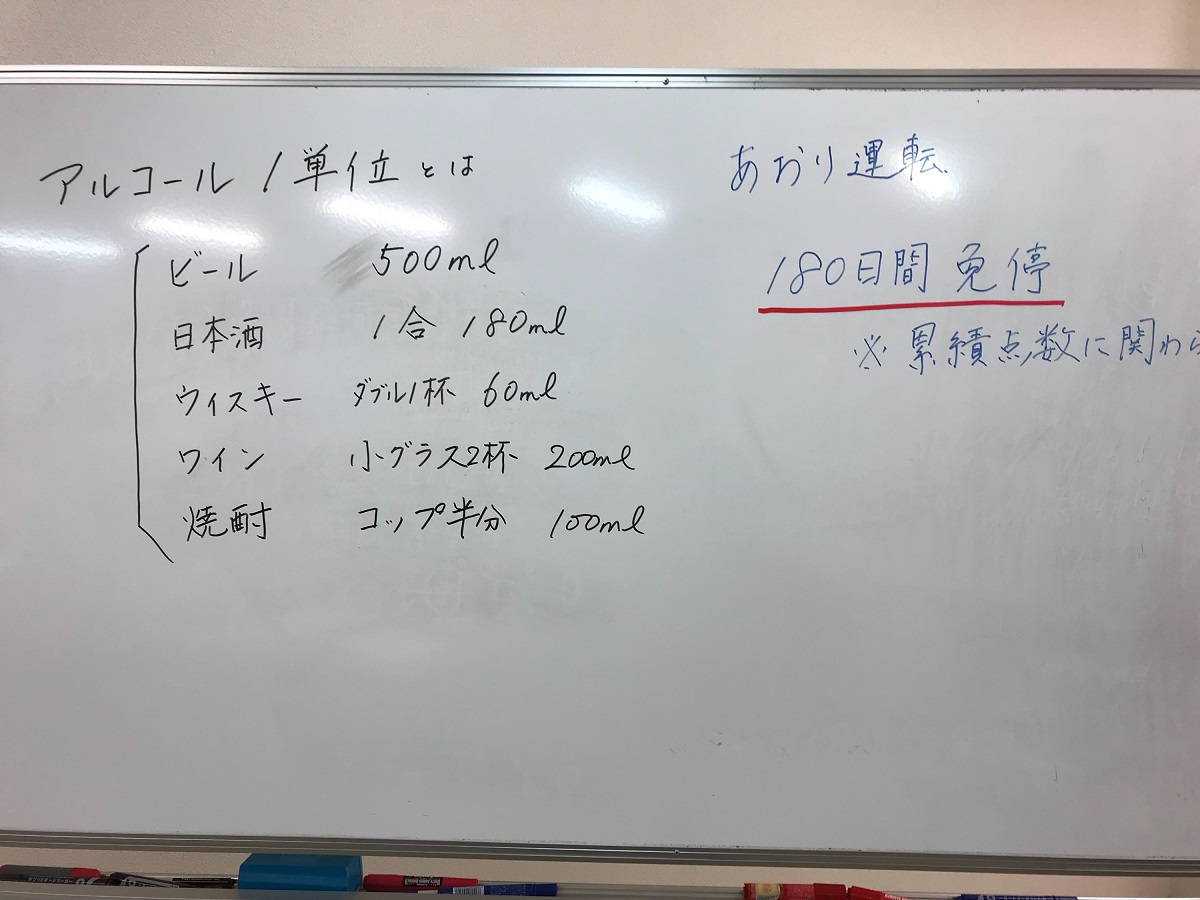 アルコール1単位とは
ビール 500ml
日本酒 1合 180ml
ウィスキー ダブル1杯 60ml
ワイン 小グラス2杯 200ml
焼酎 コップ半分 100ml
あおり運転
180日間 免停
※累積点数に関わら